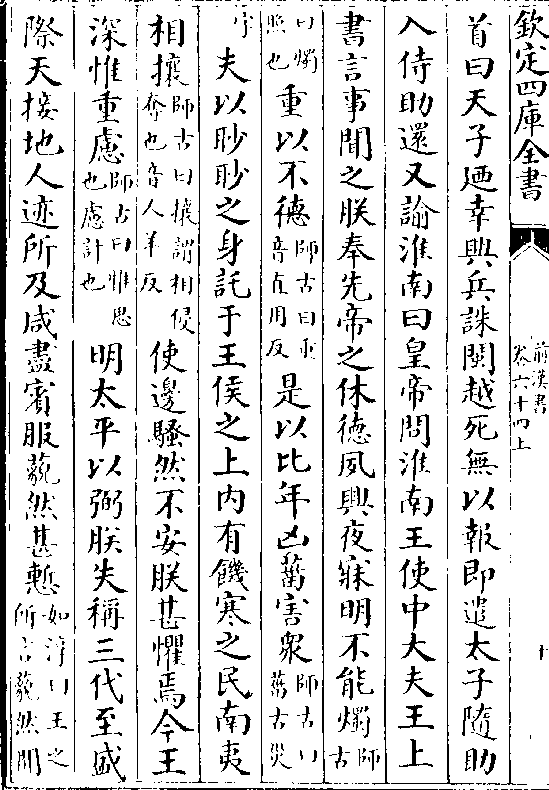 欽定四庫全書
前漢書
卷六十四上
十
首曰天子廼幸興兵誅閩越死無以報即遣太子隨助
入侍助還又諭淮南曰皇帝問淮南王使中大夫王上
書言事聞之朕奉先帝之休徳夙興夜寐明不能燭師古
曰燭照也重以不徳師古曰重音直用反是以比年凶菑害衆師古曰菑古災
字夫以眇眇之身託于王侯之上内有饑寒之民南夷
相攘師古曰攘謂相侵奪也音人羊反使邊騷然不安朕甚懼焉今王
深惟重慮師古曰惟思也慮計也明太平以弼朕失稱三代至盛
際天接地人迹所及咸盡賓服藐然甚慙如淳曰王之所言藐然聞